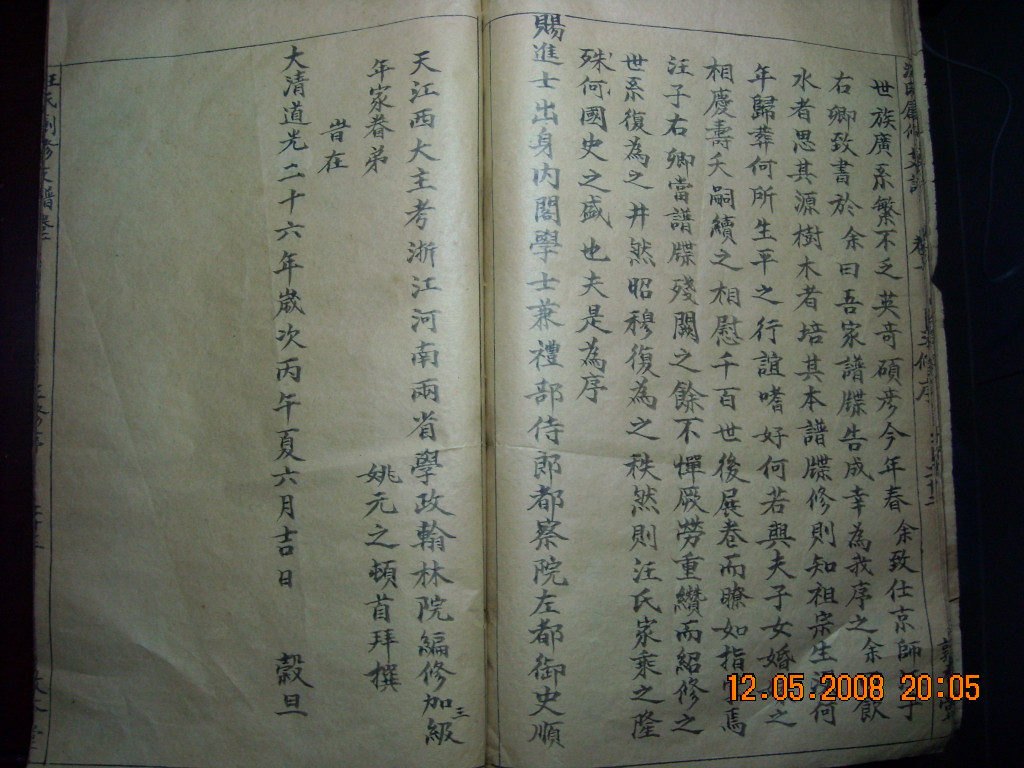 世族廣系繁不乏英奇碩彦今年春余致仕京師
右卿致書於余曰吾家譜牒告成幸為我序之余
水者思其源樹木者培其本譜牒修則知祖宗生何
年歸葬何所生平之行誼嗜好何若與夫子女婚之
相慶壽夭嗣續之相慰千百世後展卷而瞭如指掌焉
汪子右卿當譜牒殘闕之餘不憚厥勞重纘而紹修之
世系復為之井然昭穆復為之秩然則汪氏家乘之隆
殊何國史之盛也夫是為序
賜進士出身内閣學士兼禮部侍郎都察院左都御史順
天江西大主考浙江河南兩省學政翰林院編修加三級
年家眷弟 姚元之頓首拜撰
昔在
大清道光二十六年歲次丙午夏六月吉日 穀旦
12.05.2008 20:05